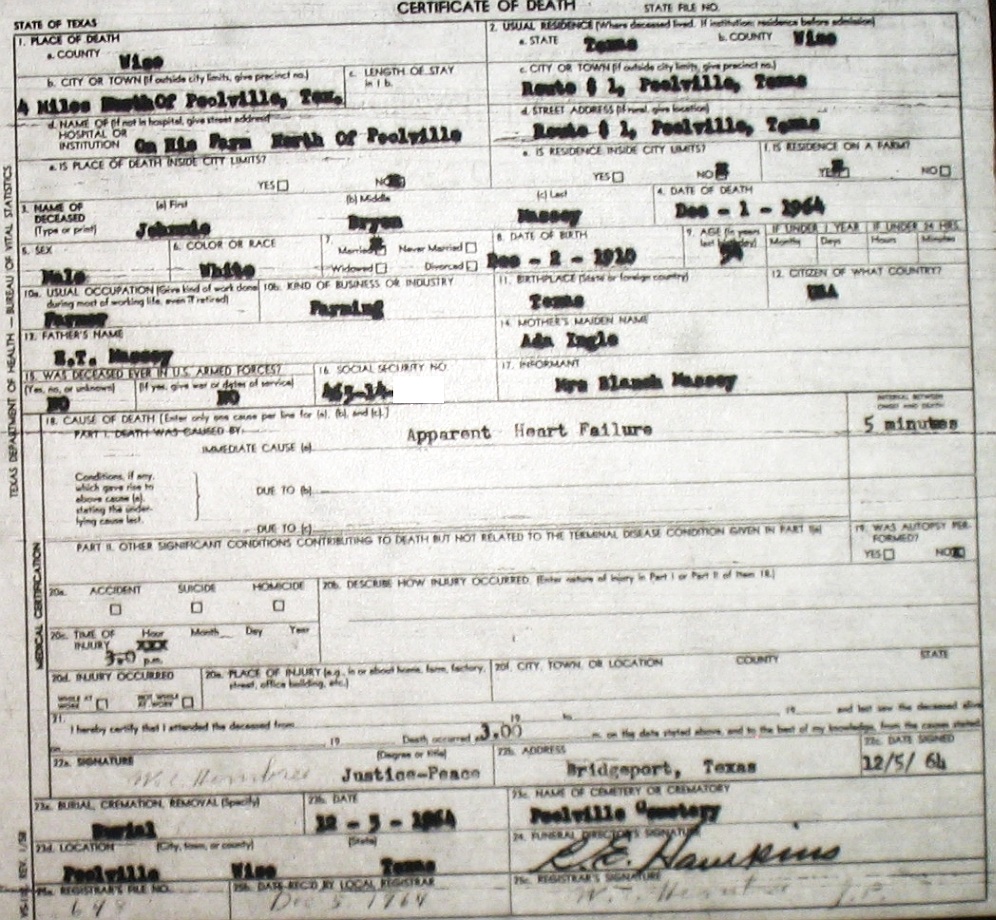 CERTIFICATE OF DEATH
STATE OF TEXAS STATE FILE NO.
1. PLACE OF DEATH
a. COUNTY Wise
2. USUAL RESIDENCE (Where deceased lived. If institution: residence before admission)
a. STATE Texas b. COUNTY Wise
b. CITY OR TOWN (If outside city limits, give precinct no.)
4 Miles North Of Poolville, Tex.
c. LENGTH OF STAY in 1b.
c. CITY OR TOWN (If outside city limits, give precinct no.)
Route # 1, Poolville, Texas
d. NAME OF (If not in hospital, give street address)
HOSPITAL OR INSTITUTION On His Farm North Of Poolville
d. STREET ADDRESS (If rural, give location)
Route # 1, Poolville, Texas
e. IS PLACE OF DEATH INSIDE CITY LIMITS?
YES NO
e. IS RESIDENCE INSIDE CITY LIMITS?
YES NO
f. IS RESIDENCE ON A FARM?
YES NO
3. NAME OF DECEASED (Type or print)
(a) First (b) Middle (c) Last
Johnnie Bryon Massey
4. DATE OF DEATH
Dec - 1 - 1964
5. SEX
Male
6. COLOR OR RACE
White
7. Married Never Married
Widowed Divorced
8. DATE OF BIRTH
Dec - 2 - 1910
9. AGE (In years last birthday)
54
IF UNDER 1 YEAR IF UNDER 24 HRS.
Months Days Hours Minutes
10a. USUAL OCCUPATION (Give kind of work done during most of working life, even if retired)
Farmer
10b. KIND OF BUSINESS OR INDUSTRY
Farming
11. BIRTHPLACE (State or foreign country)
Texas
12. CITIZEN OF WHAT COUNTRY?
USA
13. FATHER'S NAME
14. MOTHER'S MAIDEN NAME
Ada Ingle
15. WAS DECEASED EVER IN U.S. ARMED FORCES?
(Yes, no, or unknown) (If yes, give war or dates of service)
NO NO
16. SOCIAL SECURITY NO.
463-14-
17. INFORMANT
Mrs Blanch Massey
18. CAUSE OF DEATH [Enter only one cause per line for (a), (b), and (c).]
PART I. DEATH WAS CAUSED BY:
IMMEDIATE CAUSE (a) Apparent Heart Failure
INTERVAL BETWEEN ONSET AND DEATH
5 minutes
Conditions, if any, which gave rise to above cause (a), stating the underlying cause last.
DUE TO (b)
DUE TO (c)
PART II. OTHER SIGNIFICANT CONDITIONS CONTRIBUTING TO DEATH BUT NOT RELATED TO THE TERMINAL DISEASE CONDITION GIVEN IN PART I(a)
19. WAS AUTOPSY PERFORMED?
YES NO
20a. ACCIDENT SUICIDE HOMICIDE
20b. DESCRIBE HOW INJURY OCCURRED. (Enter nature of injury in Part I or Part II of Item 18.)
20c. TIME OF INJURY Hour Month Day Year
3:0 p.m.
20d. INJURY OCCURRED
WHILE AT WORK NOT WHILE AT WORK
20e. PLACE OF INJURY (e.g., in or about home, farm, factory, street, office building, etc.)
20f. CITY, TOWN, OR LOCATION COUNTY STATE
21. I hereby certify that I attended the deceased from 19 to 19 and last saw the deceased alive
on 19 Death occurred at 3.00 m. on the date stated above, and to the best of my knowledge, from the causes stated.
22a. SIGNATURE (Degree or title)
W. C. Hembree Justice-Peace
22b. ADDRESS
Bridgeport, Texas
22c. DATE SIGNED
12/5/ 64
23a. BURIAL, CREMATION, REMOVAL (Specify)
Burial
23b. DATE
12 - 3 - 1964
23c. NAME OF CEMETERY OR CREMATORY
Poolville Cemetery
23d. LOCATION (City, town, or county) (State)
Poolville Wise Texas
24. FUNERAL DIRECTOR'S SIGNATURE
R.E. Hawkins
25a. REGISTRAR'S FILE NO.
25b. DATE REC'D BY LOCAL REGISTRAR
Dec 5, 1964
25c. REGISTRAR'S SIGNATURE
TEXAS DEPARTMENT OF HEALTH — BUREAU OF VITAL STATISTICS
MEDICAL CERTIFICATION
REV. 1/58